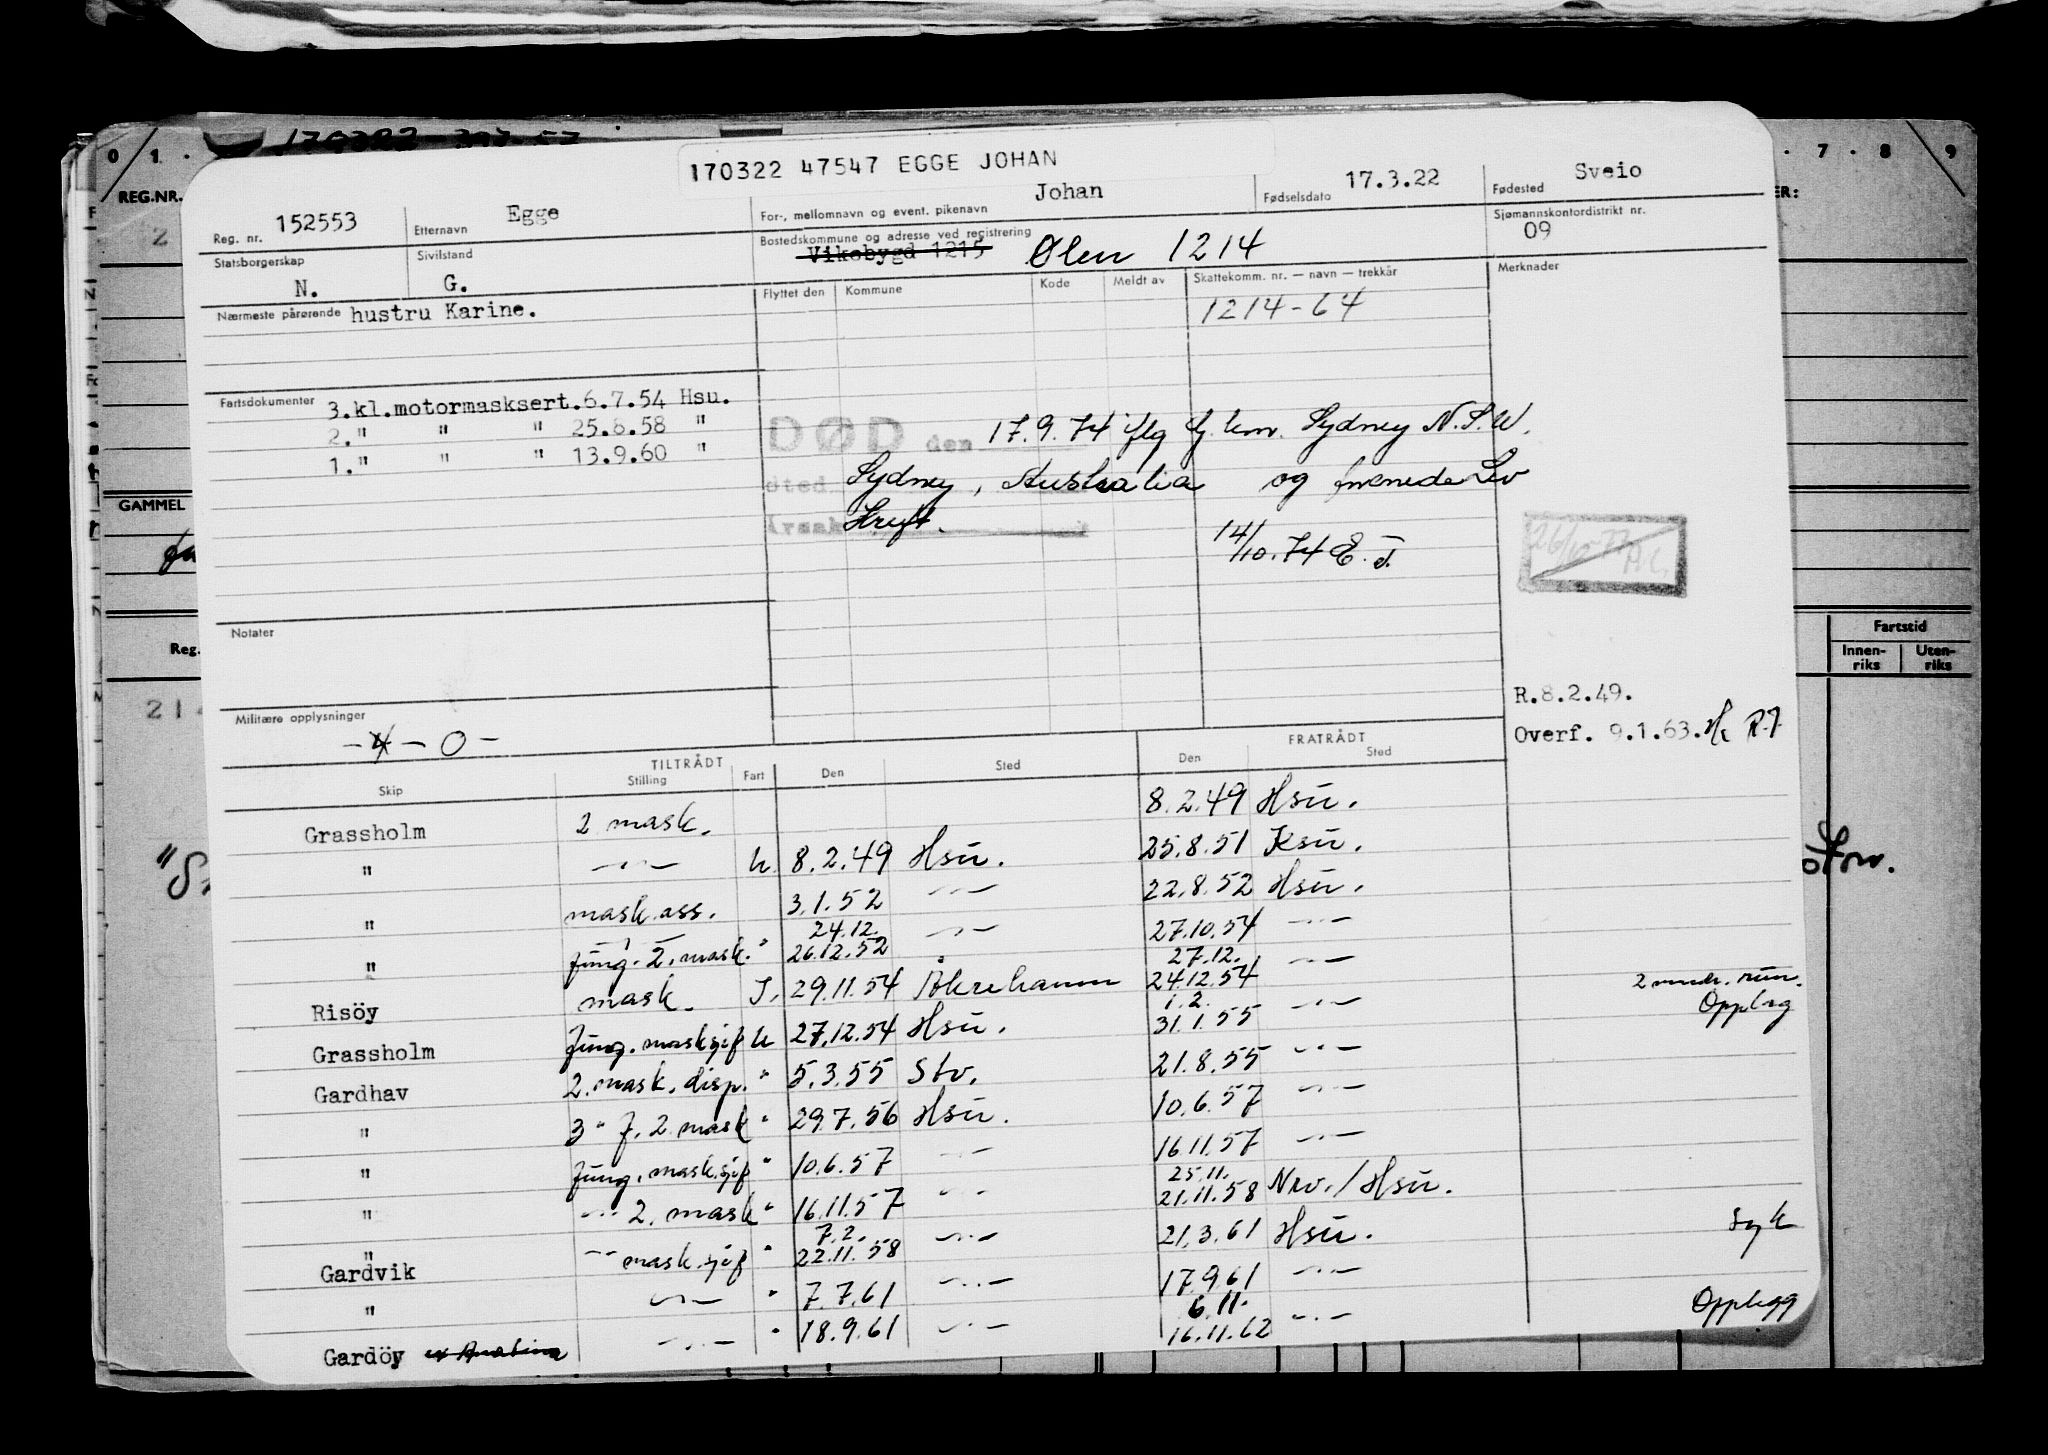 170322 47547 EGGE JOHAN
Reg. nr. 152553 Etternavn Egge For-, mellomnavn og event. pikenavn Johan Fødselsdato 17.3.22 Fødested Sveio
Statsborgerskap N. Sivilstand G. Bostedskommune og adresse ved registrering Vikebygd 1215 Ølen 1214 Sjømannskontordistrikt nr. 09
Nærmeste pårørende hustru Karine. Flyttet den Kommune Kode Meldt av Skattekomm. nr. — navn — trekkår Merknader
1214-64
Fartsdokumenter 3.kl.motormasksert.6.7.54 Hsu.
2." " " 25.8.58 "
1." " " 13.9.60 "
DØD den 17.9.74 iflg Sydney N.S.W.
sted Sydney, Australia og
14/10.74 E.J.
Notater
Militære opplysninger
-4-0-
R.8.2.49.
Overf. 9.1.63.
TILTRÅDT FRATRÅDT
Skip Stilling Fart Den Sted Den Sted
Grassholm 2 mask. 8.2.49 Hsu.
" -"- U. 8.2.49 Hsu. 25.8.51 Ksu.
" mask.ass. 3.1.52 -"- 22.8.52 Hsu.
" fung. 2. mask. " 24.12. 26.12.52 -"- 27.10.54 -"-
Risöy mask. I. 29.11.54 Åkrehamn 27.12. 24.12.54 -"-
Grassholm fung. masksjef U 27.12.54 Hsu. 1.2. 31.1.55 -"- 2 mndr. Opplag
Gardhav 2.mask. disp. " 5.3.55 Stv. 21.8.55 -"-
" 3 " f. 2 mask " 29.7.56 Hsu. 10.6.57 -"-
" fung. mask.sjef " 10.6.57 -"- 16.11.57 -"-
" -"- 2. mask " 16.11.57 -"- 25.11. 21.11.58 Nrv./Hsu.
" Gardvik -"- mask.sjef " 7.2. 22.11.58 -"- 21.3.61 Hsu. Syk
" -"- " 7.7.61 -"- 17.9.61 -"-
Gardöy -"- " 18.9.61 -"- 6.11. 16.11.62 -"- Opplegg
0 1 7 8 9
REG.NR.
GAMMEL
Reg.
Fartstid
Innen-riks Uten-riks